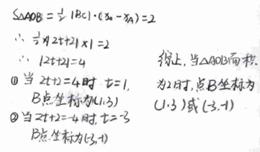 S△AOB = ½|BC|·(x₀-xA)=2
∴ ½×|2t+2|×1=2
∴ |2t+2|=4
① 当2t+2=4时 t=1,
B点坐标为(1,3)
② 当2t+2=-4时 t=-3
B点坐标为(-3,-1)
综上,当△AOB面积
为2时,点B坐标为
(1,3)或(-3,-1)